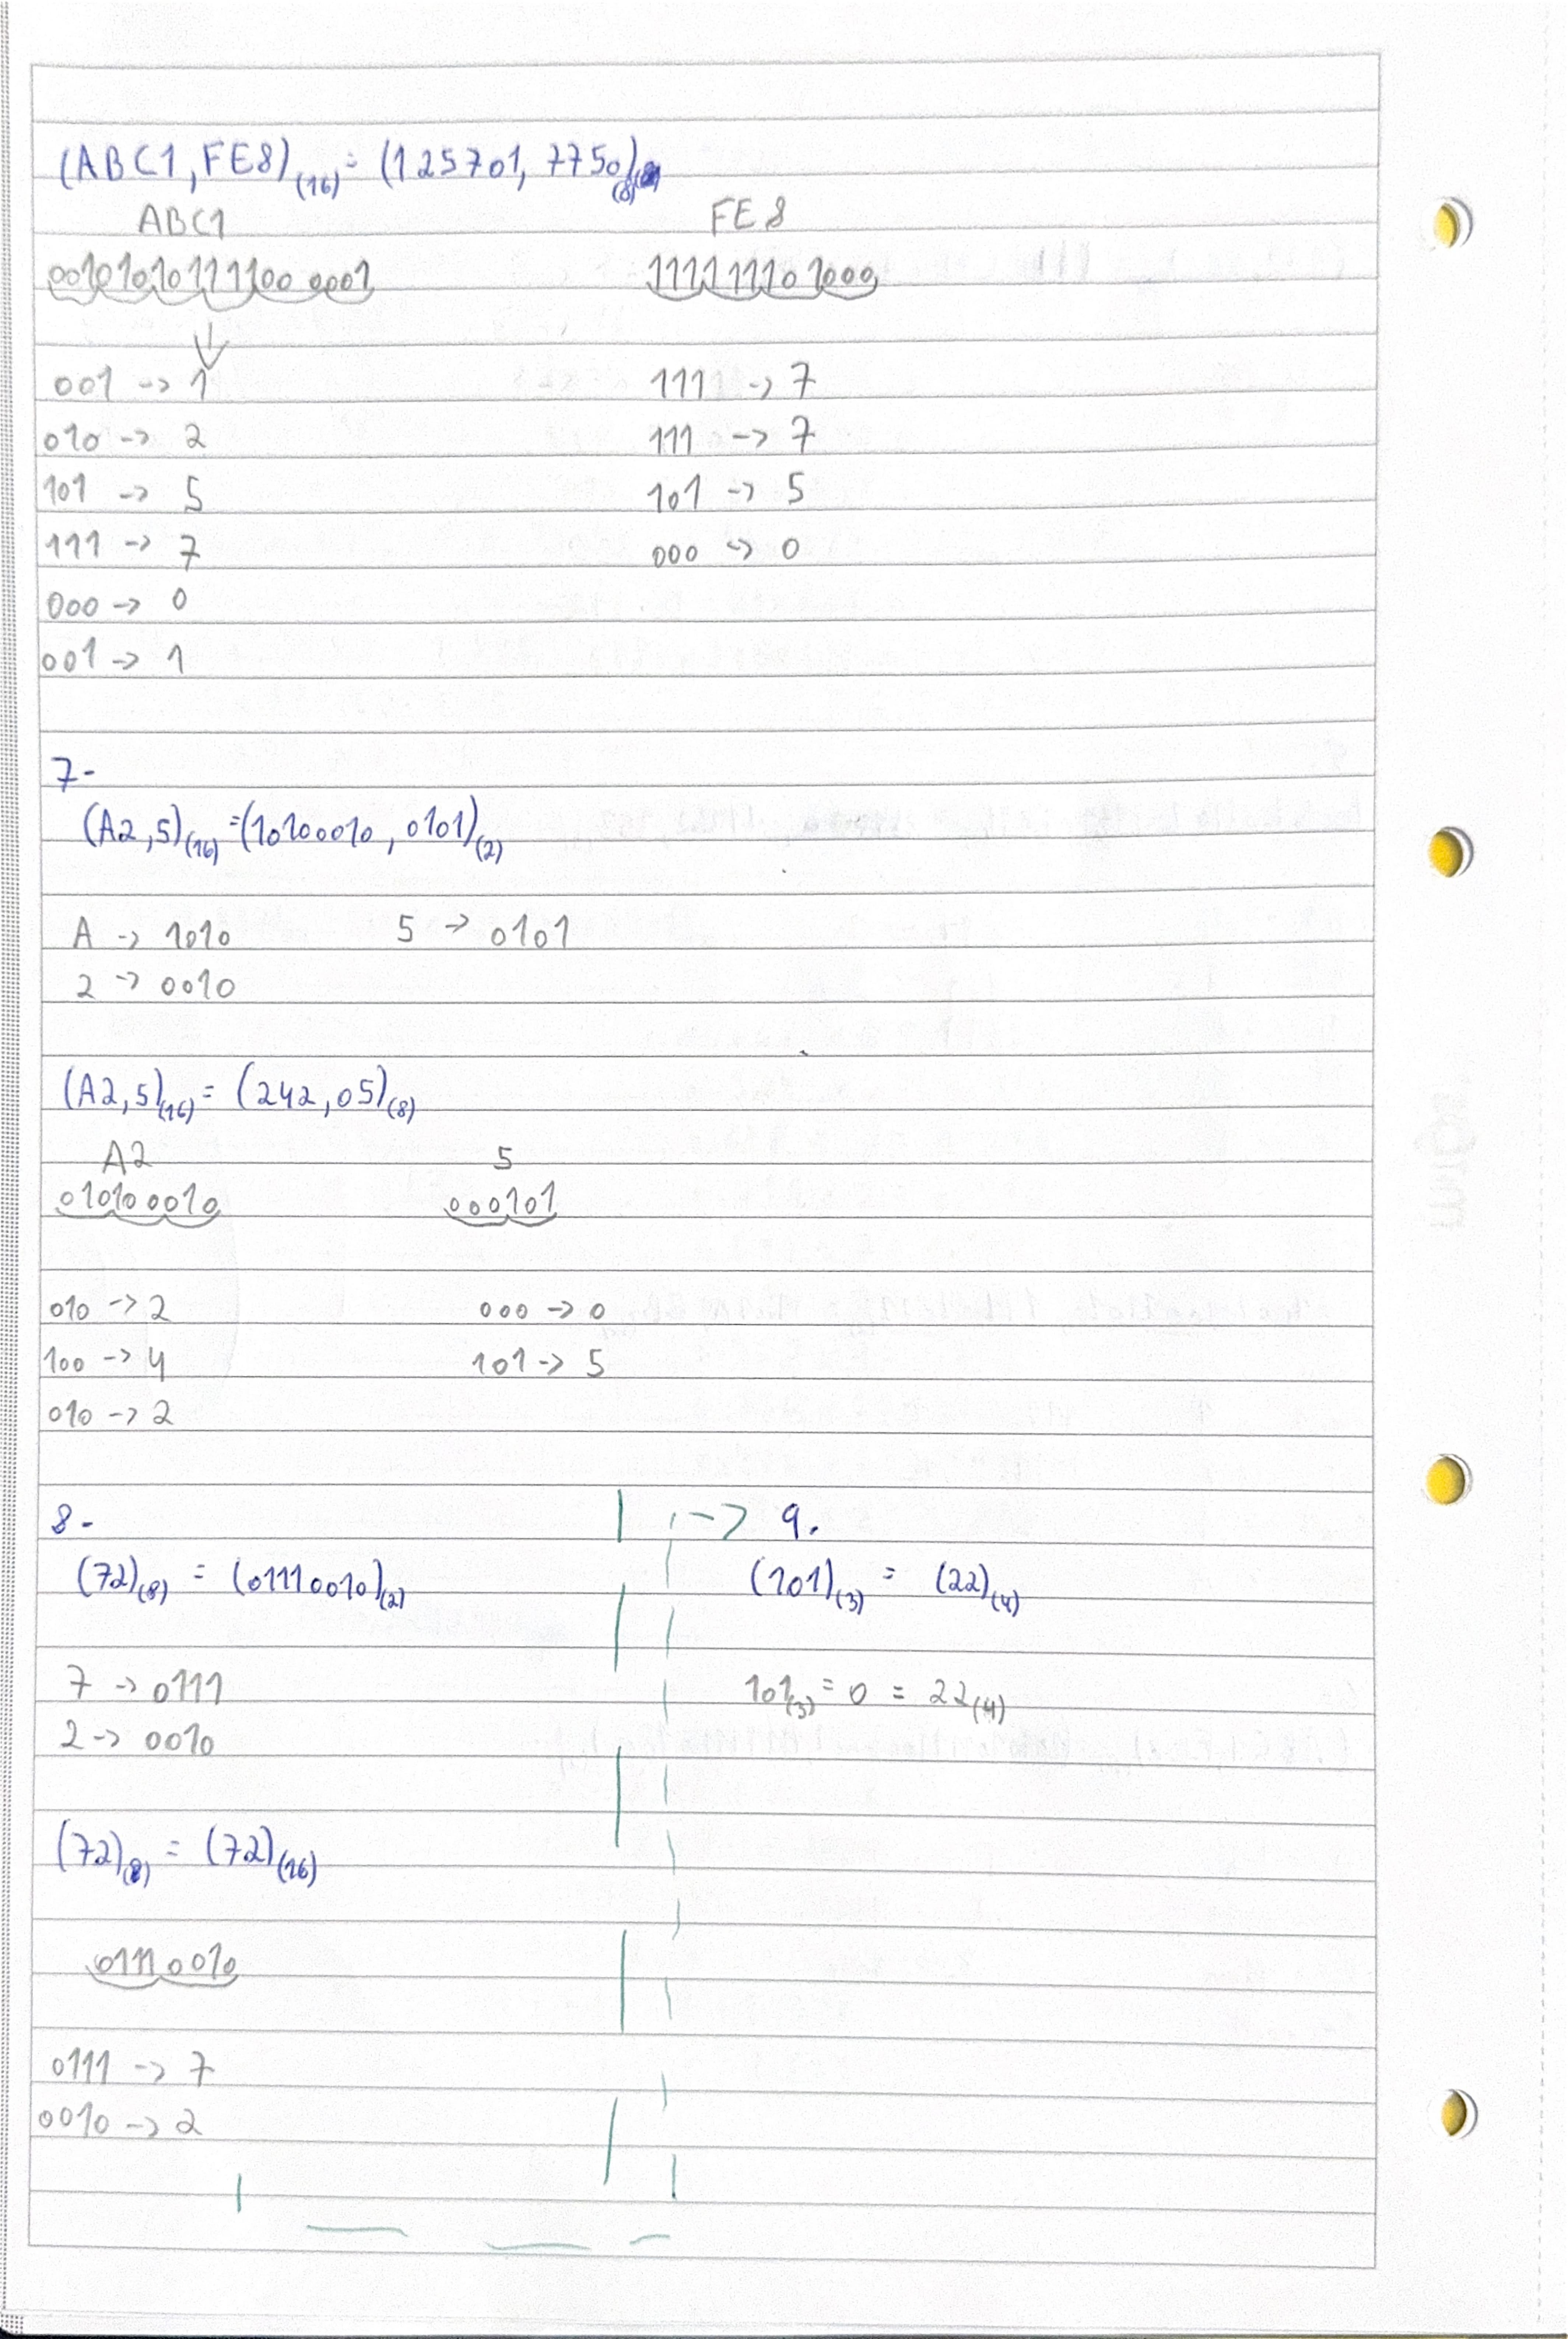 (ABC1,FE8)(16) = (125701, 7750)(8)
ABC1 FE8
001010101111000001 111111101000
001 -> 1 1111 -> 7
010 -> 2 111 -> 7
101 -> 5 101 -> 5
111 -> 7 000 -> 0
000 -> 0
001 -> 1
7-
(A2,5)(16) = (10100010, 0101)(2)
A -> 1010 5 -> 0101
2 -> 0010
(A2,5)(16) = (242,05)(8)
A2 5
010100010 000101
010 -> 2 000 -> 0
100 -> 4 101 -> 5
010 -> 2
8-
(72)(8) = (01110010)(2)
7 -> 0111
2 -> 0010
(72)(8) = (72)(16)
01110010
0111 -> 7
0010 -> 2
-> 9.
(101)(3) = (22)(4)
101(3) = 0 = 22(4)